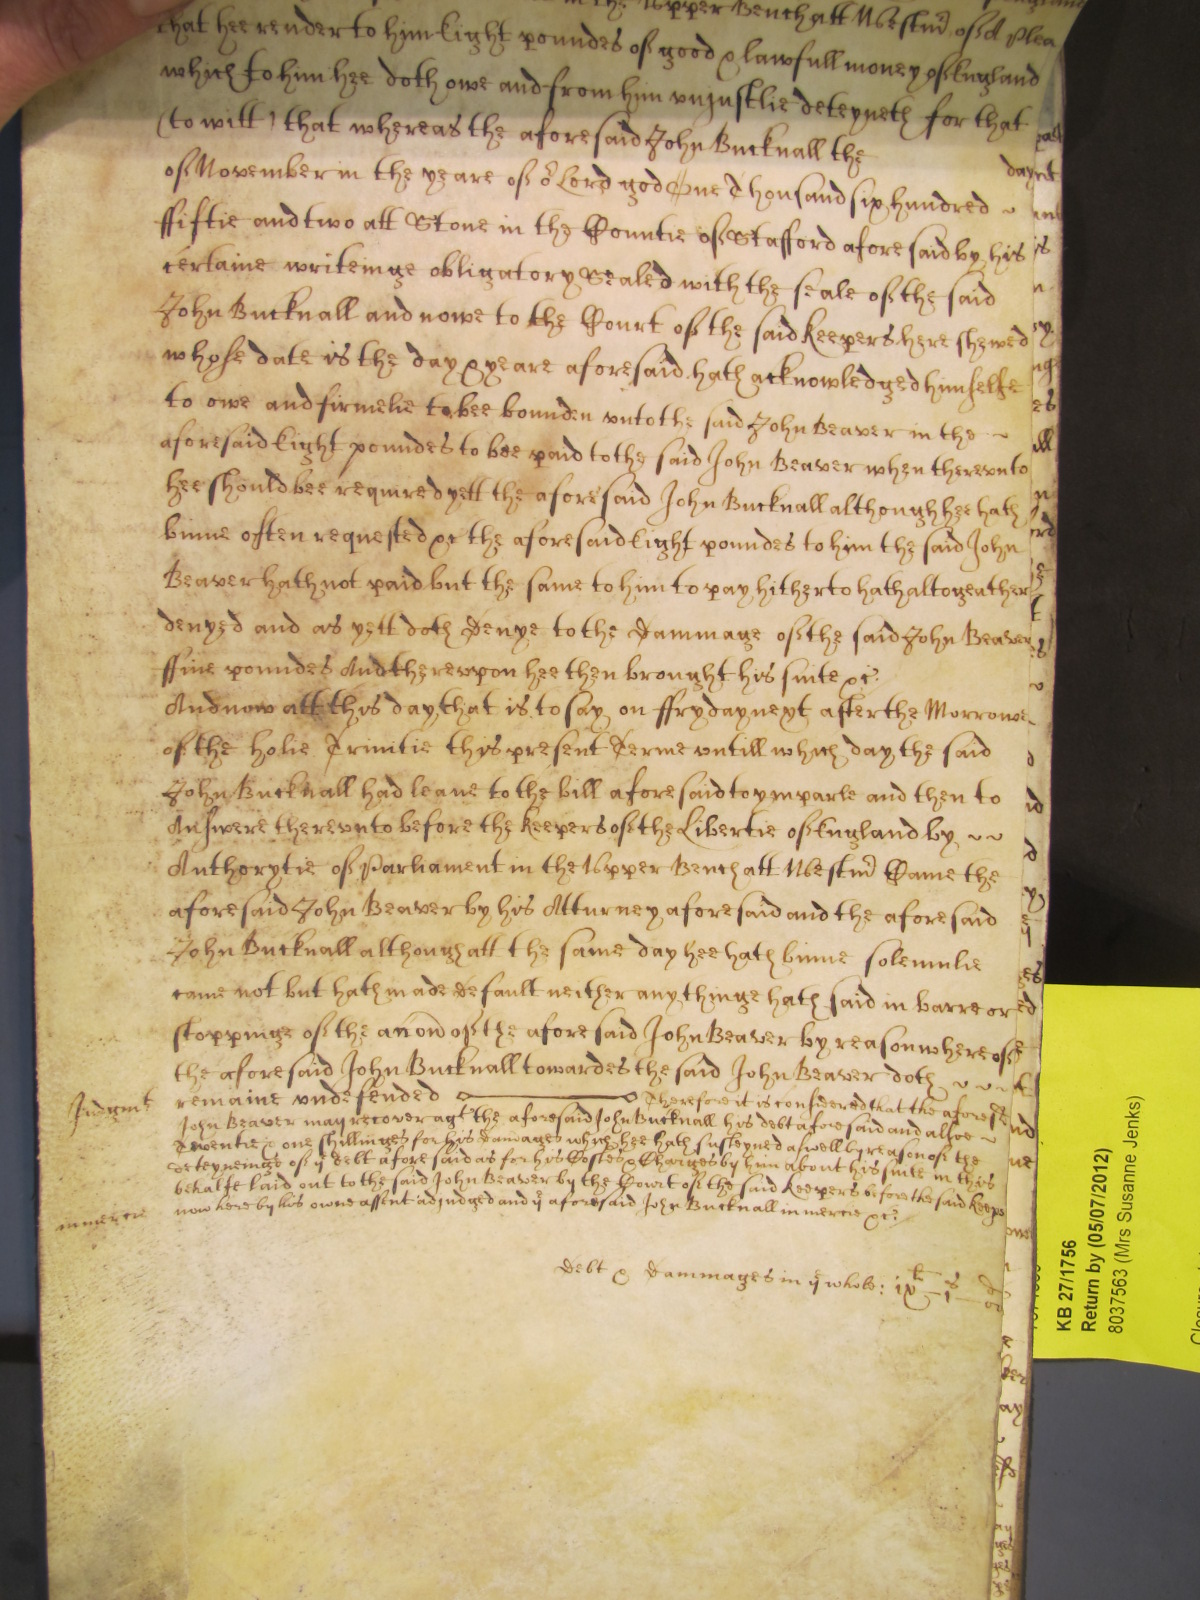 in the Upper Bench att Westmr of A Plea
that hee render to him Eight poundes of good & lawfull money of England
which to him hee doth owe and from him vniustlie deteyneth for that
(to witt) that whereas the aforesaid John Bucknall the day
of November in the yeare of or Lord god One Thousand six hundred
ffiftie and two att Stone in the Countie of Stafford aforesaid by his
certaine writeinge obligatory Sealed with the seale of the said
John Bucknall and nowe to the Court of the said keepers here shewed
whose date is the day & yeare aforesaid hath acknowledged himselfe
to owe and firmelie to bee bounden vnto the said John Beaver in the
aforesaid Eight poundes to bee paid to the said John Beaver when therevnto
hee should bee required yett the aforesaid John Bucknall although hee hath
binne often requested &c the aforesaid Eight poundes to him the said John
Beaver hath not paid but the same to him to pay hitherto hath altogeather
denyed and as yett doth Denye to the Dammage of the said John Beaver
ffive poundes And therevpon hee then brought his suite &c:
And now att this day that is to say on ffryday next after the Morrowe
of the holie Trinitie this present Terme vntill which day the said
John Bucknall had leave to the bill aforesaid to ymparle and then to
Answere therevnto before the keepers of the Libertie of England by
Authorytie of Parliament in the Upper Bench att Westmr Came the
aforesaid John Beaver by his Atturney aforesaid and the aforesaid
John Bucknall although att the same day hee hath binne solemnlie
came not but hath made default neither any thinge hath said in barre or
stoppinge of the accon of the aforesaid John Beaver by reason whereof
the aforesaid John Bucknall towardes the said John Beaver doth
Judgmt remaine vndefended Therefore it is considered that the aforesd
John Beaver may recover agt the aforesaid John Bucknall his debt aforesaid and alsoe
Twentie & one shillinges for his damages which hee hath susteyned aswell by reason of the
deteyneinge of ye debt aforesaid as for his Costes & Charges by him about his suite in this
behalfe laid out to the said John Beaver by the Court of the said Keepers before the said Keeps
in mercie now here by his owne assent adjudged and ye aforesaid John Bucknall in mercie &c:
Debt & Dammages in ye whole: ix l – i s
KB 27/1756
Return by (05/07/2012)
8037563 (Mrs Susanne Jenks)